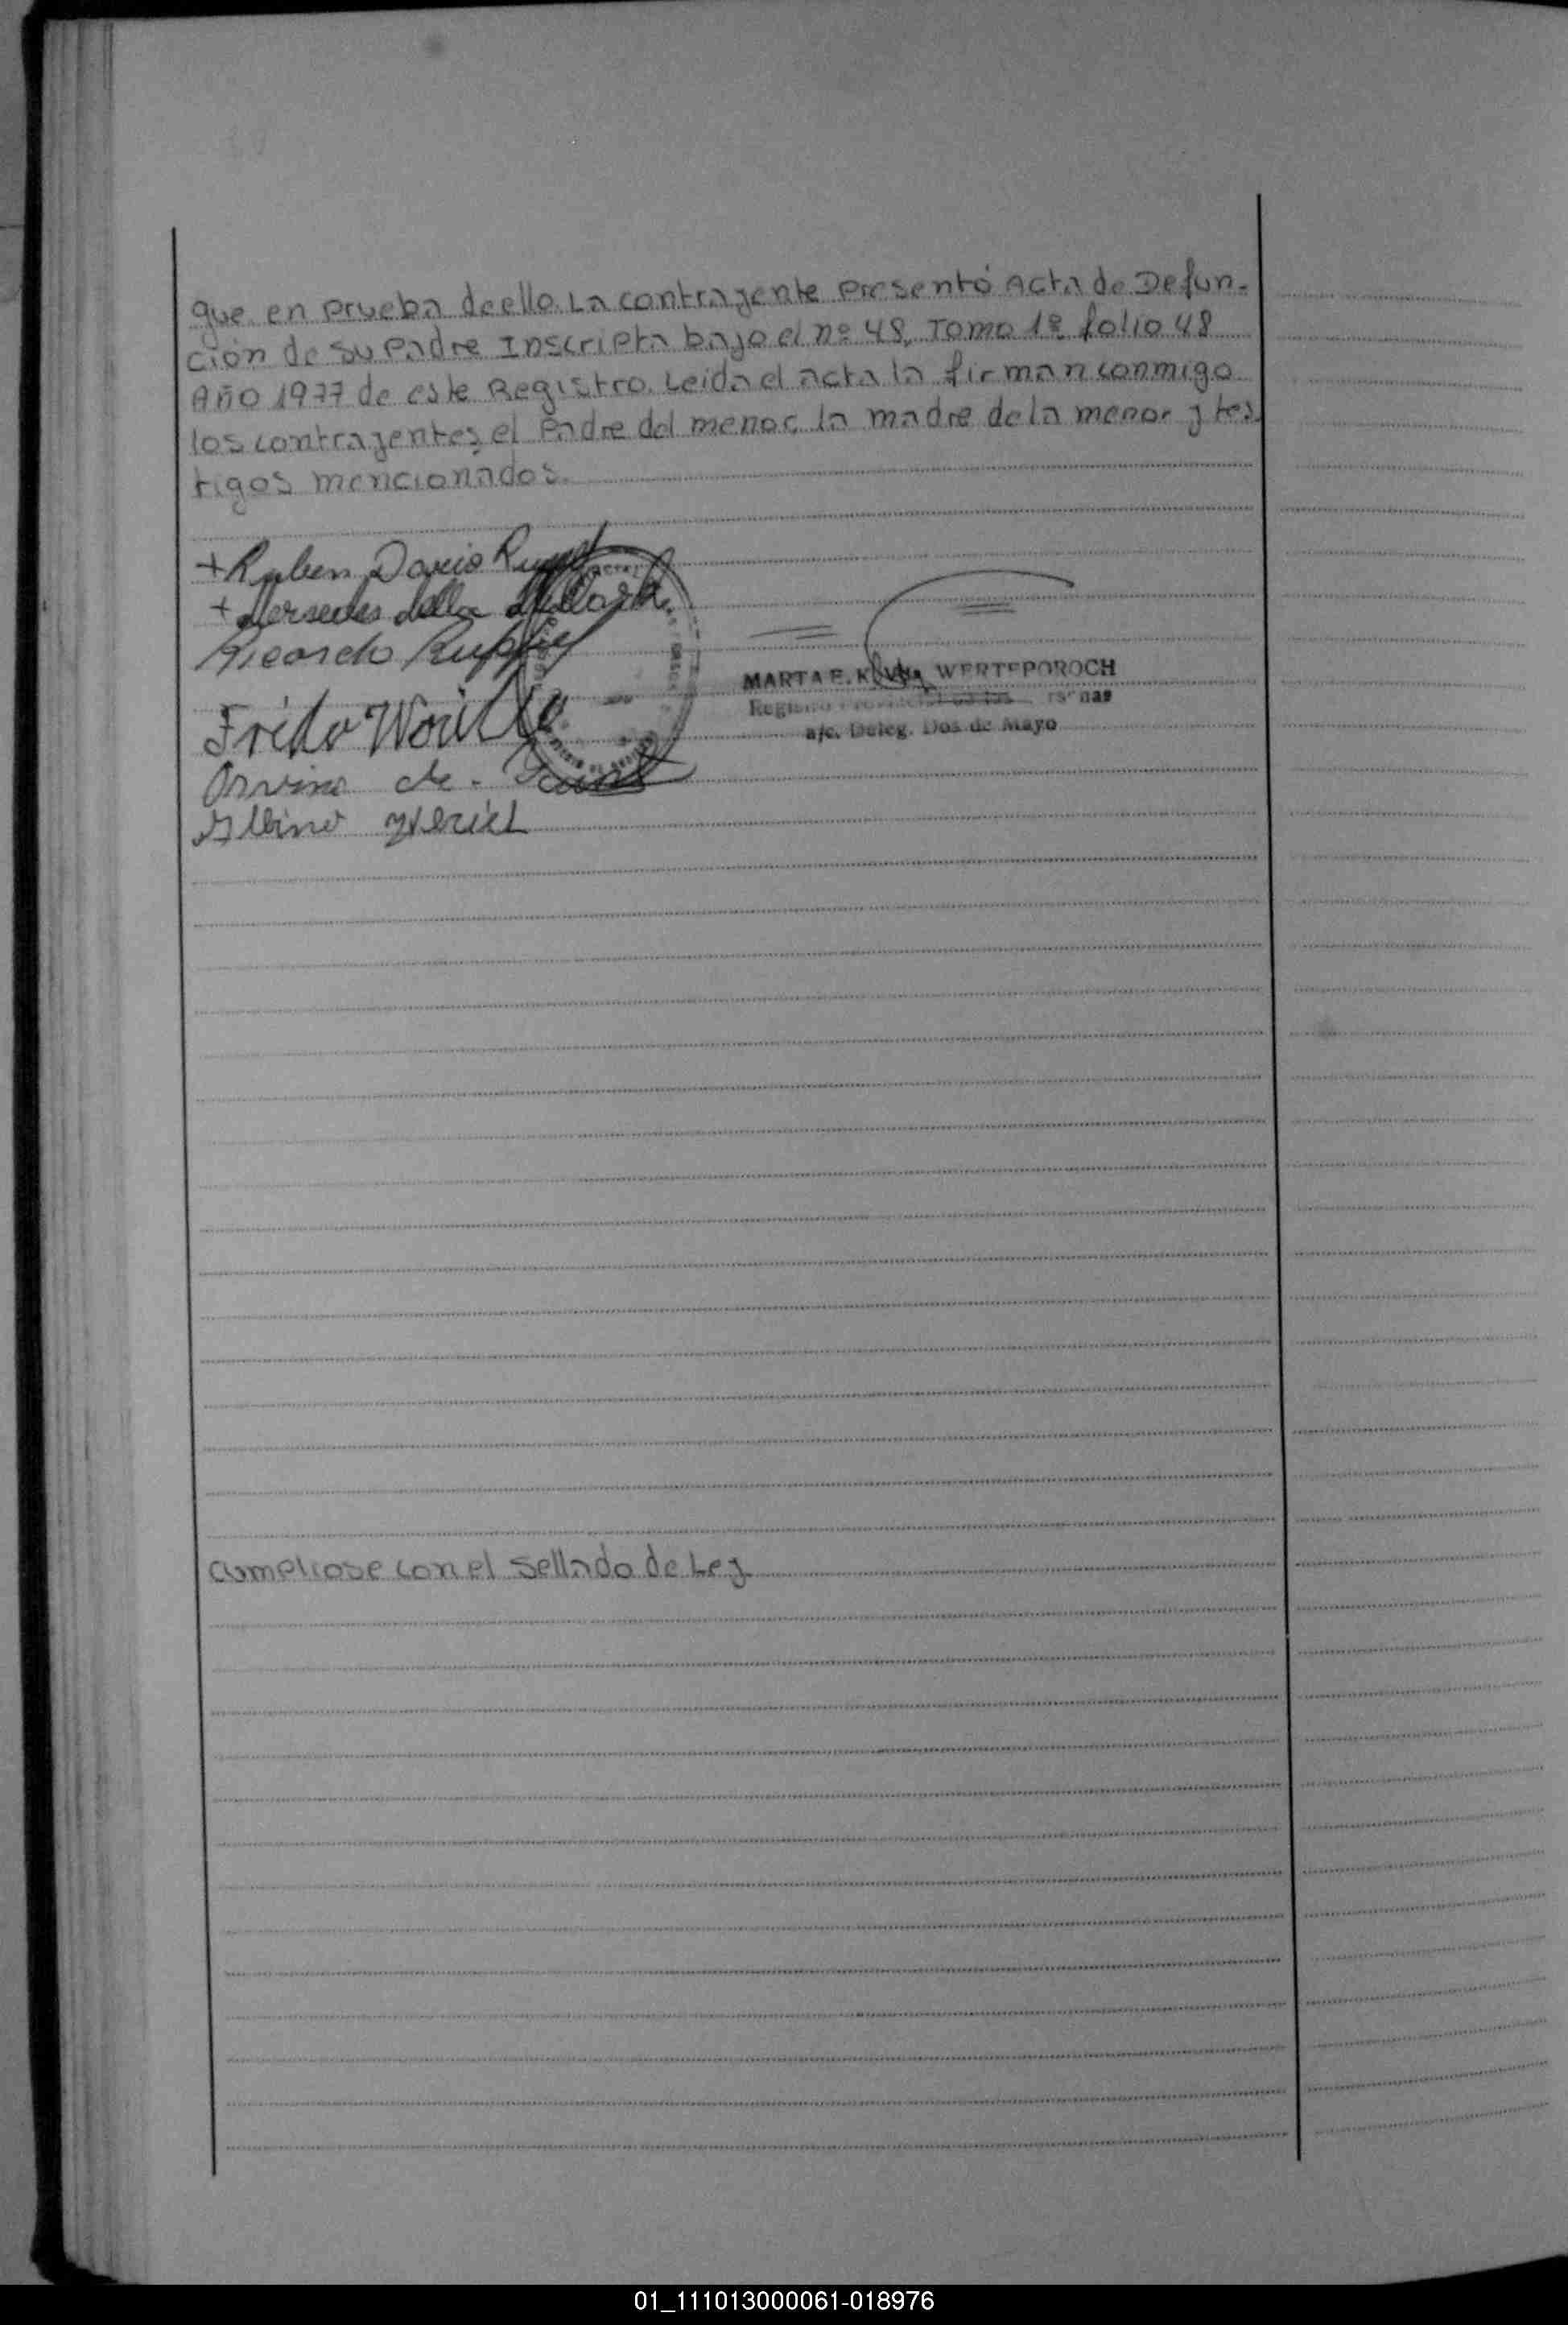 que en prueba de ello. La contrayente presentó Acta de Defun-
ción de su Padre Inscripta bajo el nº 48, Tomo 1º folio 48
Año 1977 de este Registro. Leida el acta la firman conmigo
los contrayentes, el Padre del menor, la madre de la menor y tes
tigos mencionados.
+ Ruben Dario
+ della
Ricardo
Frido
MARTA E. WERTEPOROCH
Registro
a/c. Deleg. Dos de Mayo
de
Albino
Cumpliose con el Sellado de Ley
01_111013000061-018976